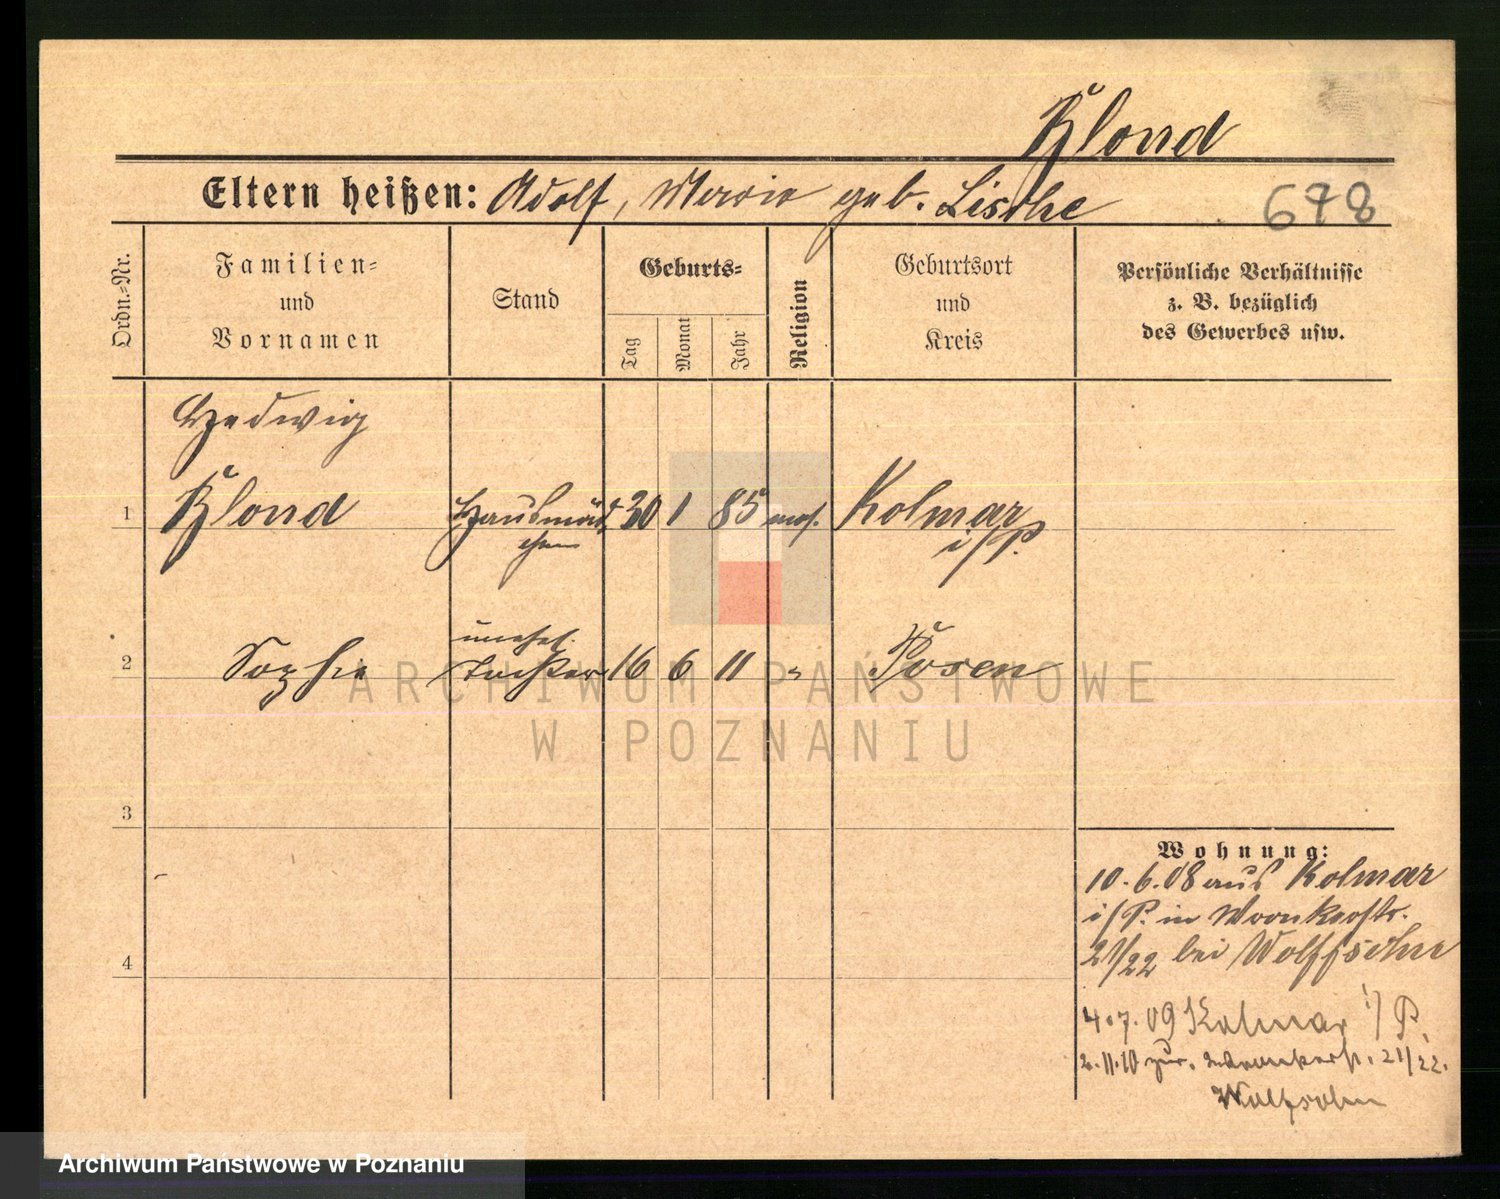 Blond
Eltern heißen: Adolf, Maria geb. Lischke
678
Ordn.-Nr.
Familien-
und
Vornamen
Stand
Geburts-
Tag
Monat
Jahr
Religion
Geburtsort
und
Kreis
Persönliche Verhältnisse
z. B. bezüglich
des Gewerbes usw.
Hedwig
1 Blond Hausmäd 30 1 85 mos. Kolmar
chen i/P.
unehel.
2 Sophie Tochter 16 6 11 " Posen
3
4
Wohnung:
10.6.08 aus Kolmar
i/P. in Wronkerstr.
21/22 bei Wolffsohn
4.7.09 Kolmar i/P.
2.11.10 zur. Wronkerstr. 21/22.
Wolfsohn
ARCHIWUM PAŃSTWOWE
W POZNANIU
Archiwum Państwowe w Poznaniu